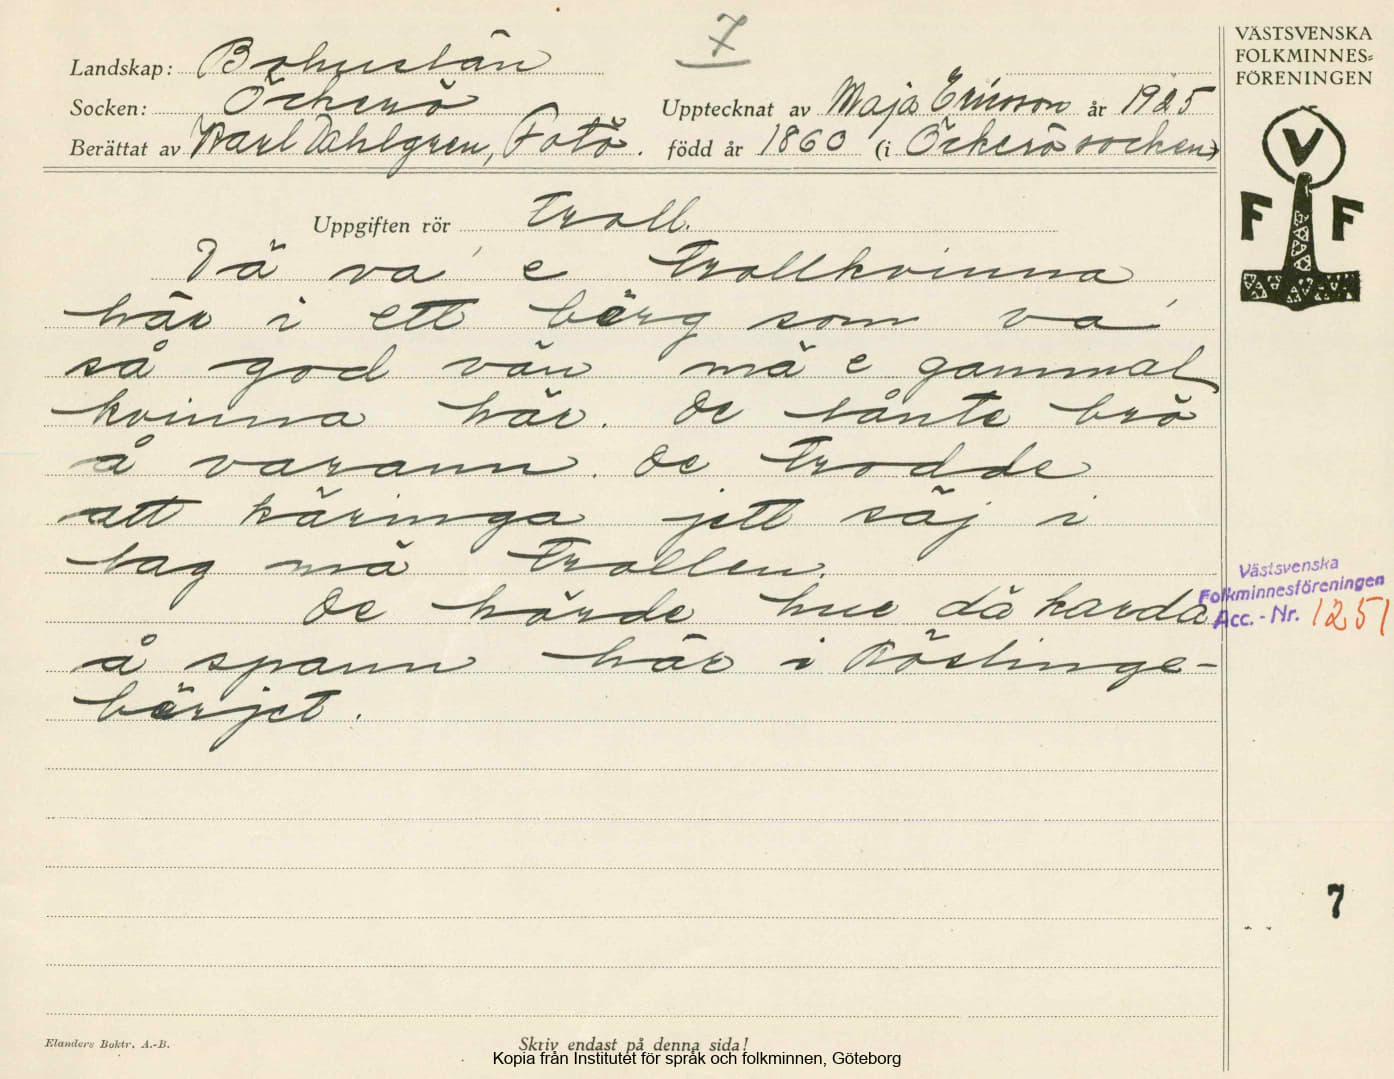 7
Landskap: Bohuslän
Socken: Öckerö
Upptecknat av Maja Ericsson år 1925
Berättat av Karl Dahlgren, Fotö.
född år 1860 (i Öckerö socken)
VÄSTSVENSKA
FOLKMINNES=
FÖRENINGEN
V
F F
Uppgiften rör Troll.
Dä va' e Trollkvinna
här i ett bärg som va'
så god vän mä e gammal
kvinna här. De lånte brö
å varann. De trodde
att käringa jett säj i
lag mä Trollen.
De hörde hue dä karda
å spann här i Röslinge-
bärjet.
Västsvenska
Folkminnesföreningen
Acc. - Nr. 1251
7
Elanders Boktr. A.-B.
Skriv endast på denna sida!
Kopia från Institutet för språk och folkminnen, Göteborg